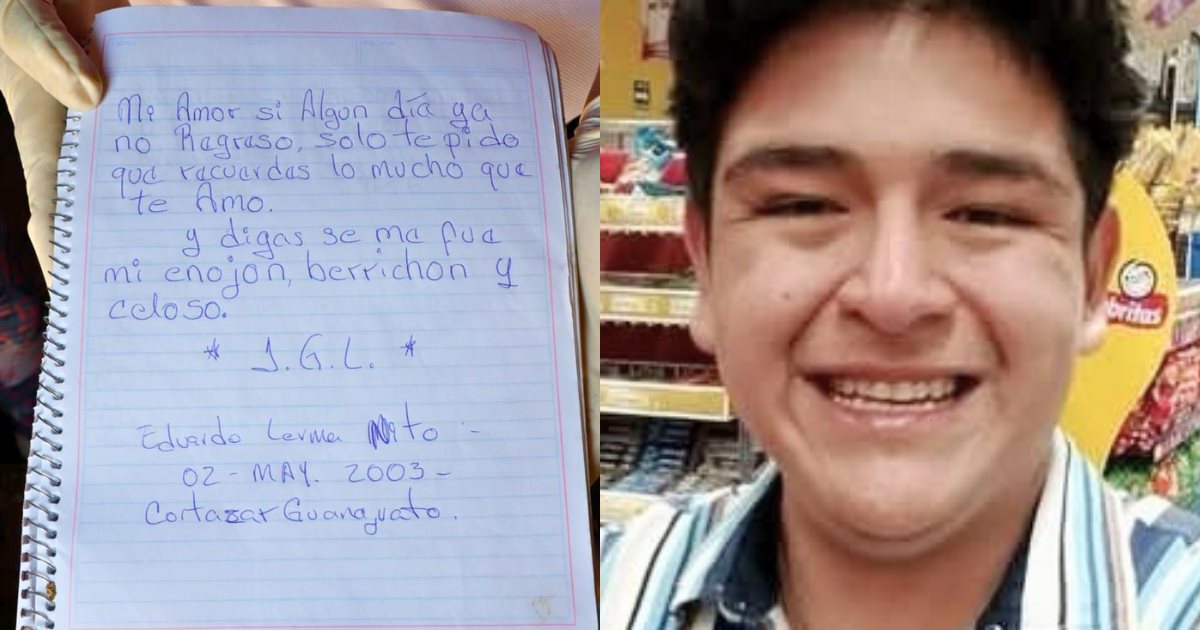 Mi Amor si Algun día ya
no Regreso, solo te pido
que recuerdes lo mucho que
te Amo.
y digas se me fue
mi enojon, berrichon y
celoso.
* J.G.L. *
Eduardo Lerma Nito -
02 - MAY. 2003 -
Cortazar Guanajuato.
oritos